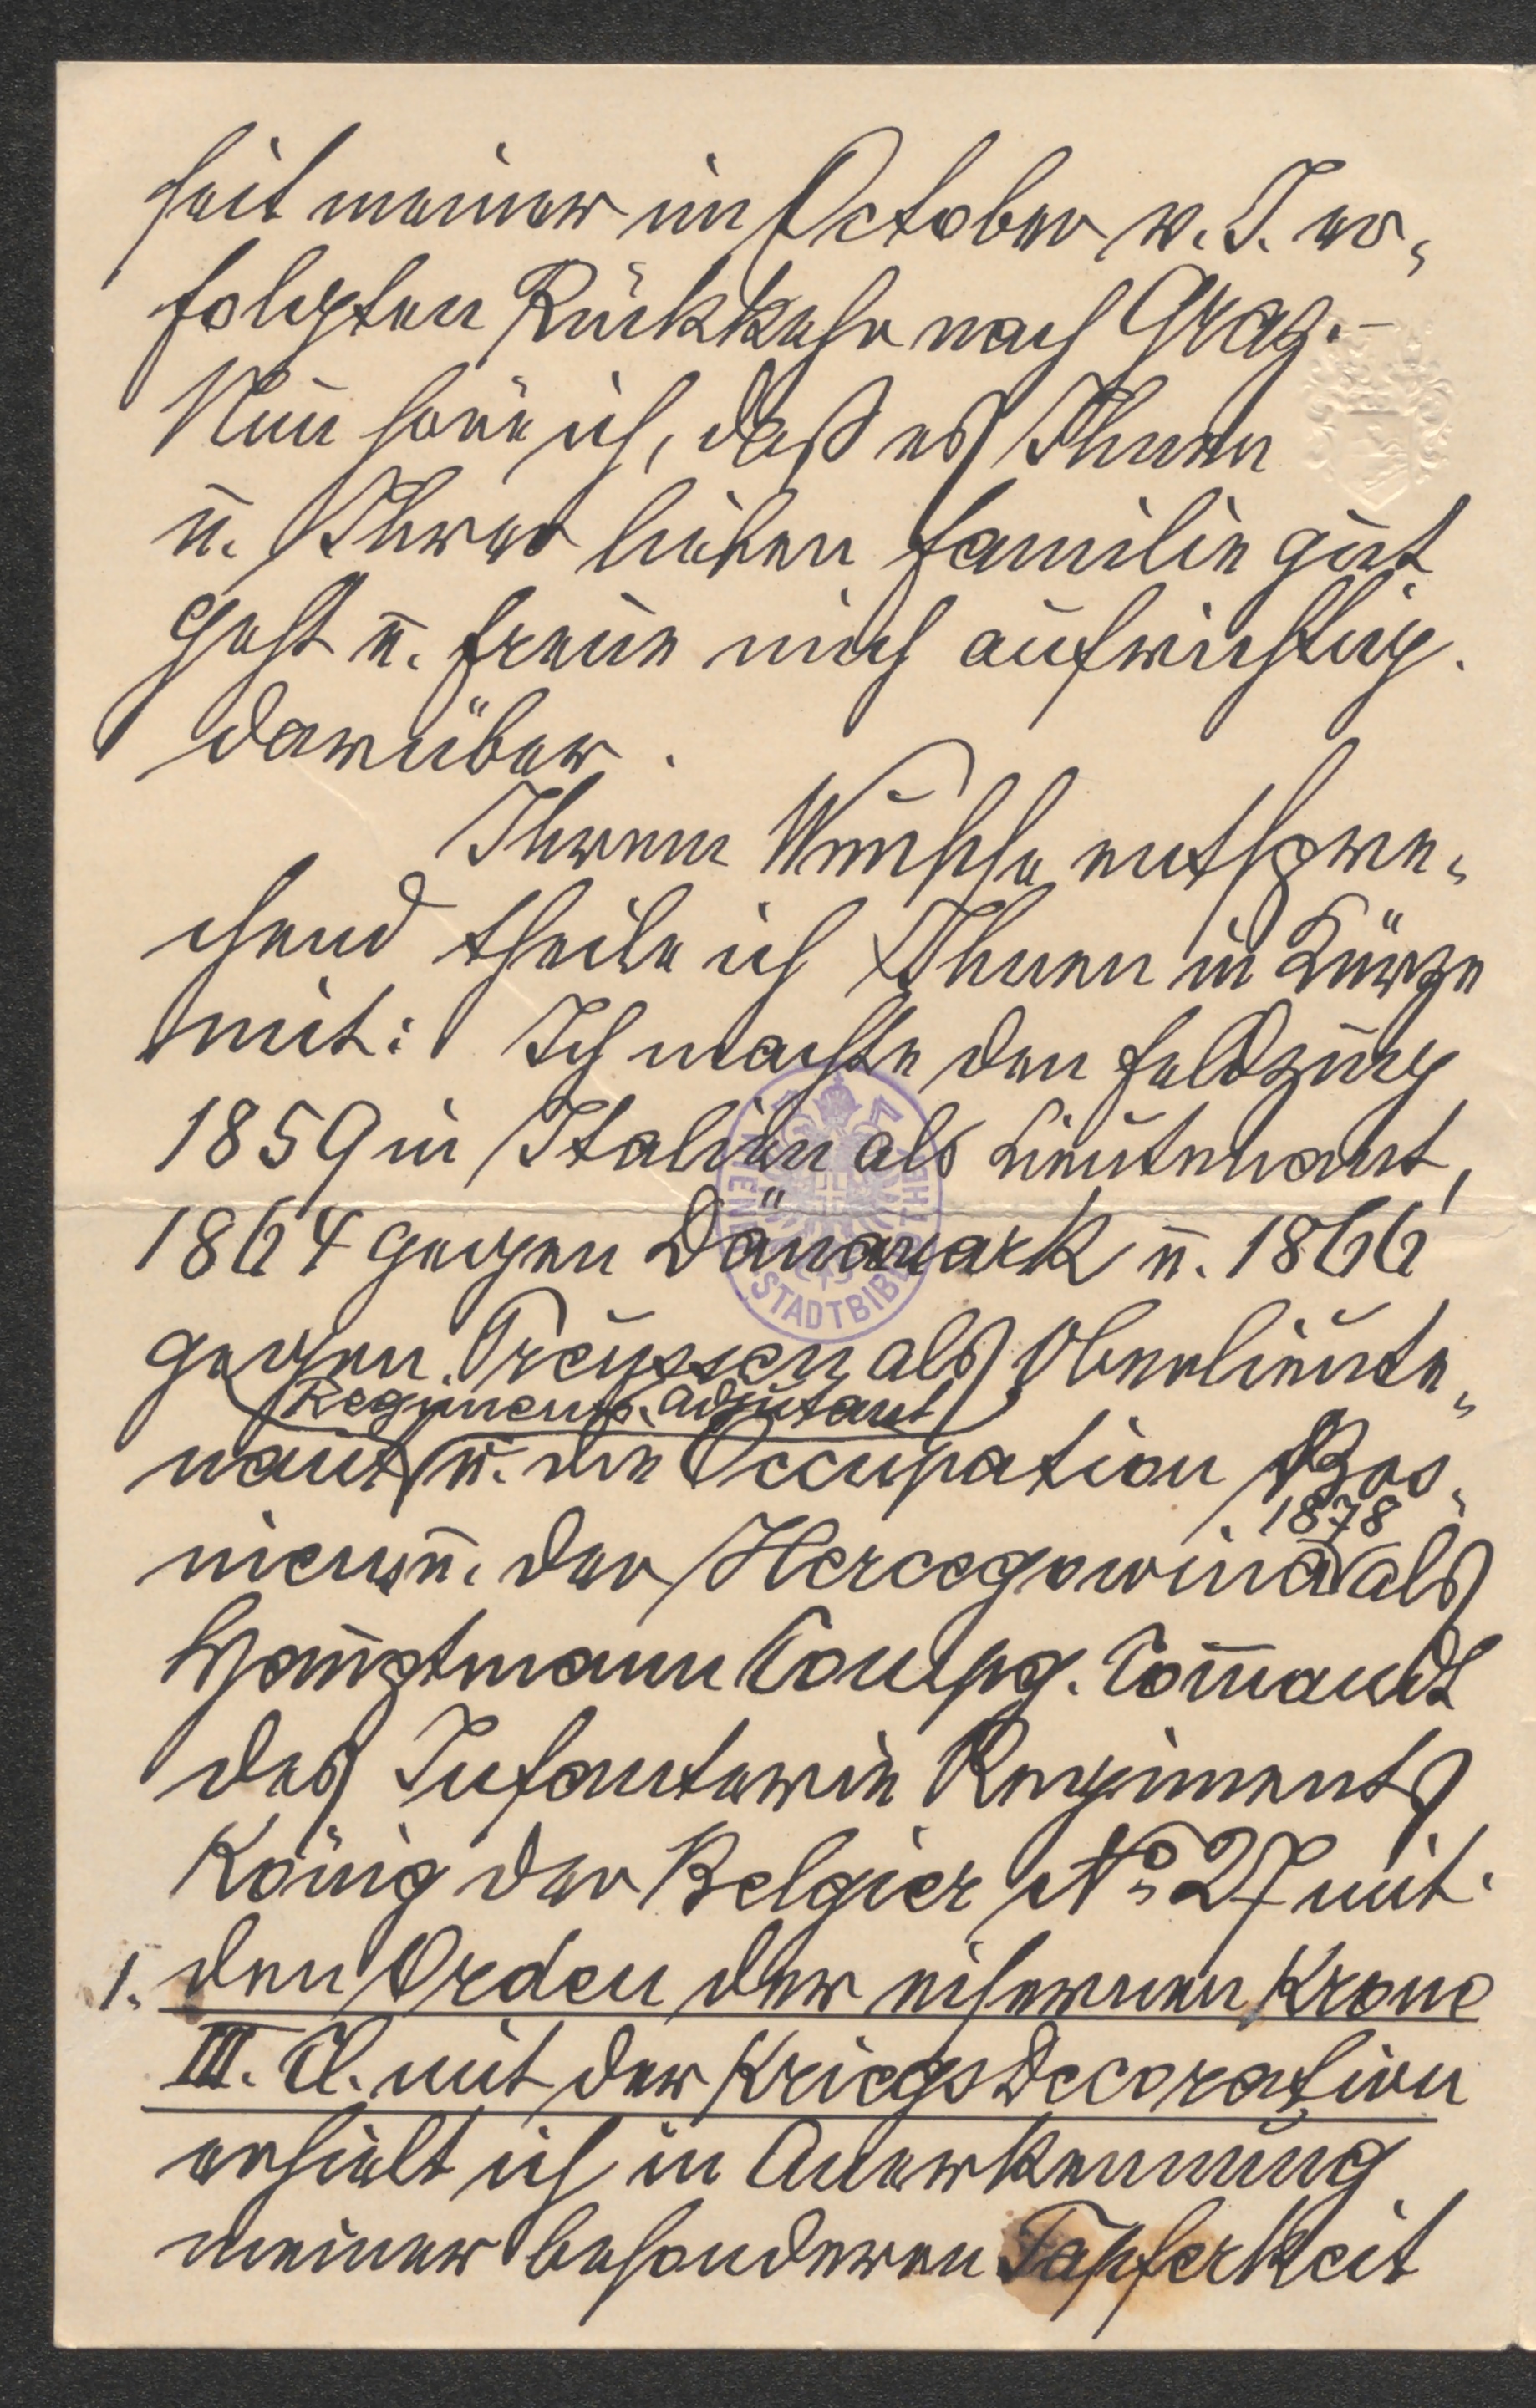 seit meiner im October v. J. er„
folgten Rückkehr nach Graz.–
Nun höre ich, daß es Ihnen
u. Ihrer lieben Familie gut
geht u. freue mich aufrichtig
darüber.
Ihrem Wunsche entspre„
chend theile ich Ihnen in Kürze
mit: Ich machte den Feldzug
1859 in Italien als Lieutenant,
1864 gegen Dänemark u. 1866
gegen Preussen als Oberlieute„
Regiments-Adjutant
nant u. die Occupation Bos„
1878
niens u. der Hercegowina als
Hauptmann Compg. Com̅andt
des Infanterie Regiments
König der Belgier No 27 mit.
1. den Orden der eisernen Krone
III. Cl. mit der KriegsDecoration
erhielt ich in Anerkennung
meiner besonderen Tapferkeit
WIENER STADTBIBLIOTHEK